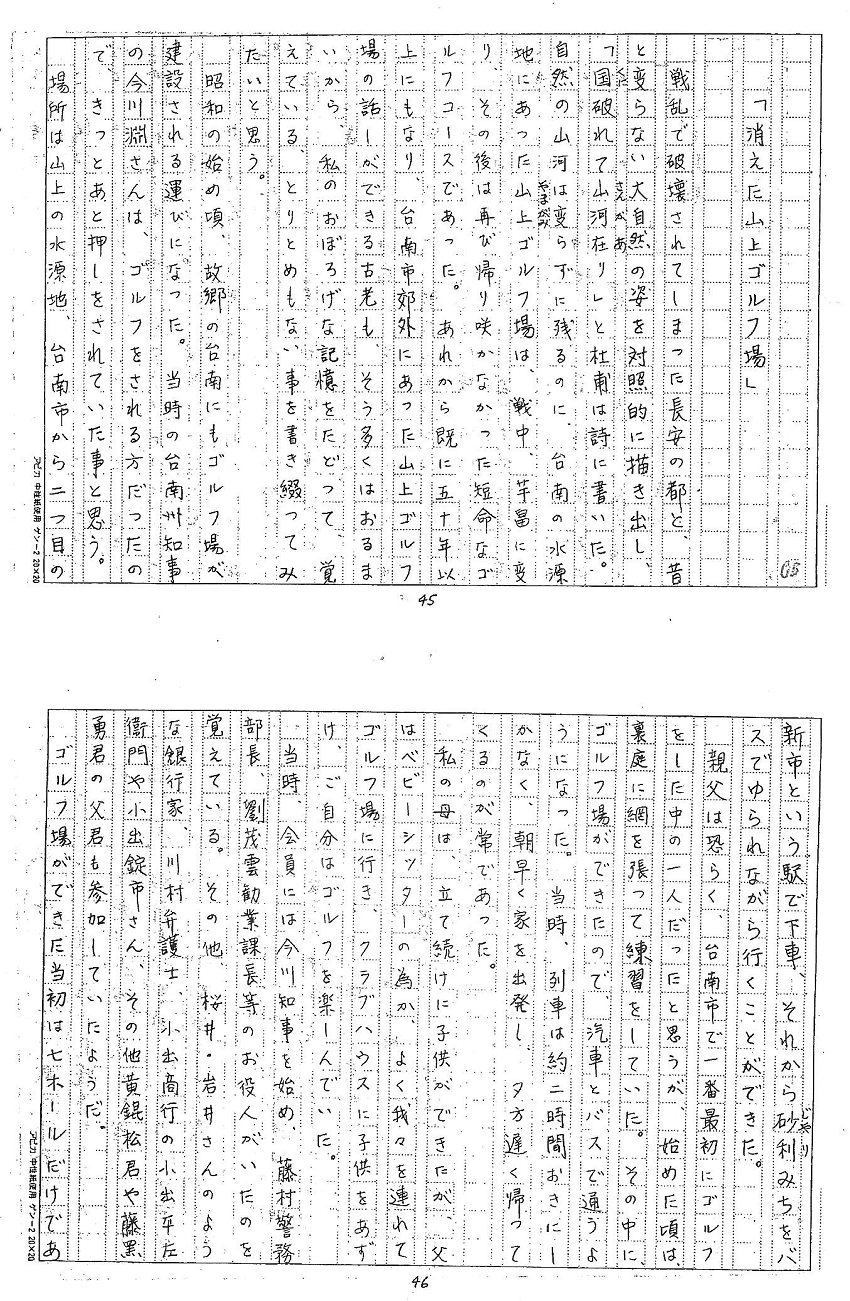 「消えた山上ゴルフ場」
戦乱で破壊されてしまった長安の都と、昔
と変らない大自然の姿を対照的に描き出し、
「国破れて山河在り」と杜甫は詩に書いた。
自然の山河は変らずに残るのに、台南の水源
地にあった山上ゴルフ場は、戦中、芋畠に変
り、その後は再び帰り咲かなかった短命なゴ
ルフコースであった。あれから既に五十年以
上にもなり、台南市郊外にあった山上ゴルフ
場の話しができる古老も、そう多くはおるま
いから、私のおぼろげな記憶をたどって、覚
えている、とりとめもない事を書き綴ってみ
たいと思う。
昭和の始め頃、故郷の台南にもゴルフ場が
建設される運びになった。当時の台南州知事
の今川淵さんは、ゴルフをされる方だったの
で、きっとあと押しをされていた事と思う。
場所は山上の水源地、台南市から二つ目の
アピカ 中性紙使用 ゲンー2 20×20
45
新市という駅で下車、それから砂利みちをバ
じゃり
スでゆられながら行くことができた。
親父は恐らく、台南市で一番最初にゴルフ
をした中の一人だったと思うが、始めた頃は、
裏庭に網を張って練習をしていた。その中に、
ゴルフ場ができたので、汽車とバスで通うよ
うになった。当時、列車は約二時間おきにし
かなく、朝早く家を出発し、夕方遅く帰って
くるのが常であった。
私の母は、立て続けに子供ができたが、父
はベビーシッターの為か、よく我々を連れて
ゴルフ場に行き、クラブハウスに子供をあず
け、ご自分はゴルフを楽しんでいた。
当時、会員には今川知事を始め、藤村警務
部長、劉茂雲勧業課長等のお役人がいたのを
覚えている。その他、桜井・岩井さんのよう
な銀行家、川村弁護士、小出商行の小出卒左
衛門や小出錠市さん、その他黄錕松君や藤黒
勇君の父君も参加していたようだ。
ゴルフ場ができた当初は七ホールだけであ
アピカ 中性紙使用 ゲンー2 20×20
46